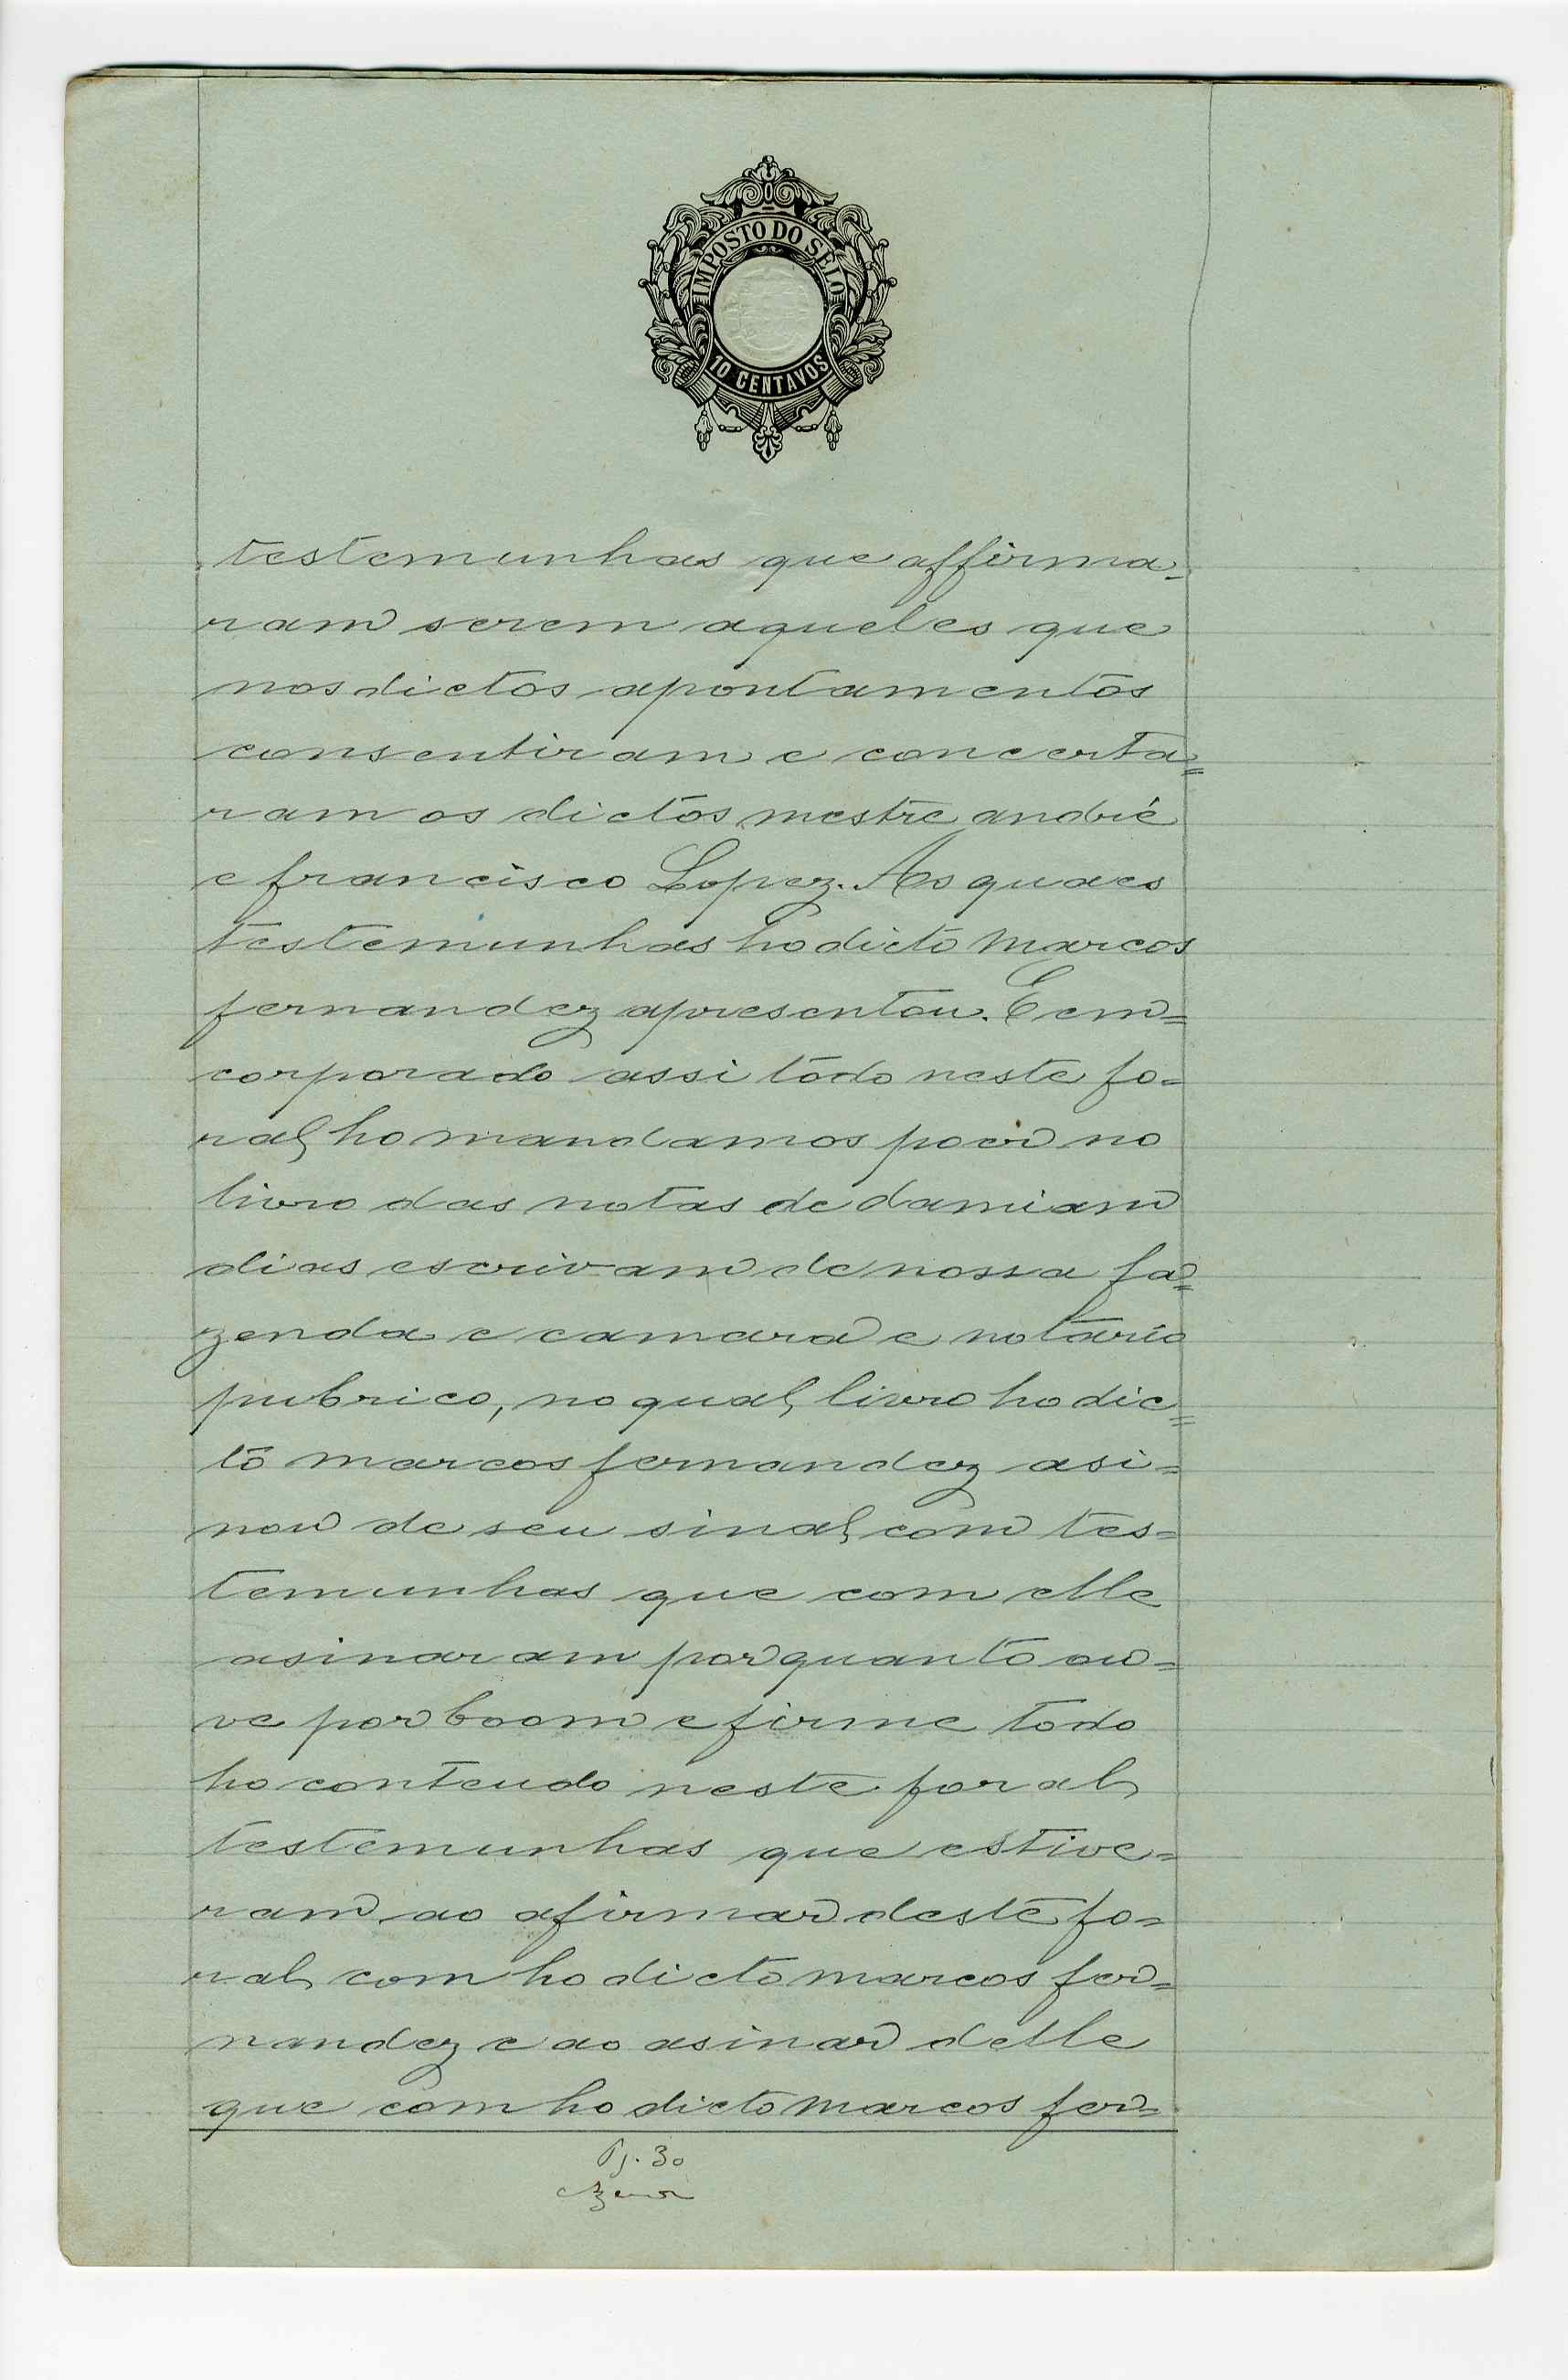 IMPOSTO DO SELO
10 CENTAVOS
testemunhas que affirma-
ram serem aqueles que
nos dictos apontamentos
consentiram e concerta=
ram os dictos mestre andré
e francisco Lopez. As quaes
testemunhas ho dicto Marcos
fernandez apresentou. E em=
corporado assi todo neste fo=
ral ho mandamos poer no
livro das notas de damiam
dias escrivam de nossa fa=
zenda e camara e notario
pubrico, no qual livro ho dic=
to marcos fernandez asi=
nou de seu sinal com tes=
temunhas que com elle
asinaram por quanto ou=
ve por boom e firme todo
ho conteudo neste foral
testemunhas que estive=
ram ao afirmar deste fo=
ral com ho dicto marcos fer=
nandez e ao asinar delle
que com ho dicto Marcos fer=
Pg. 30